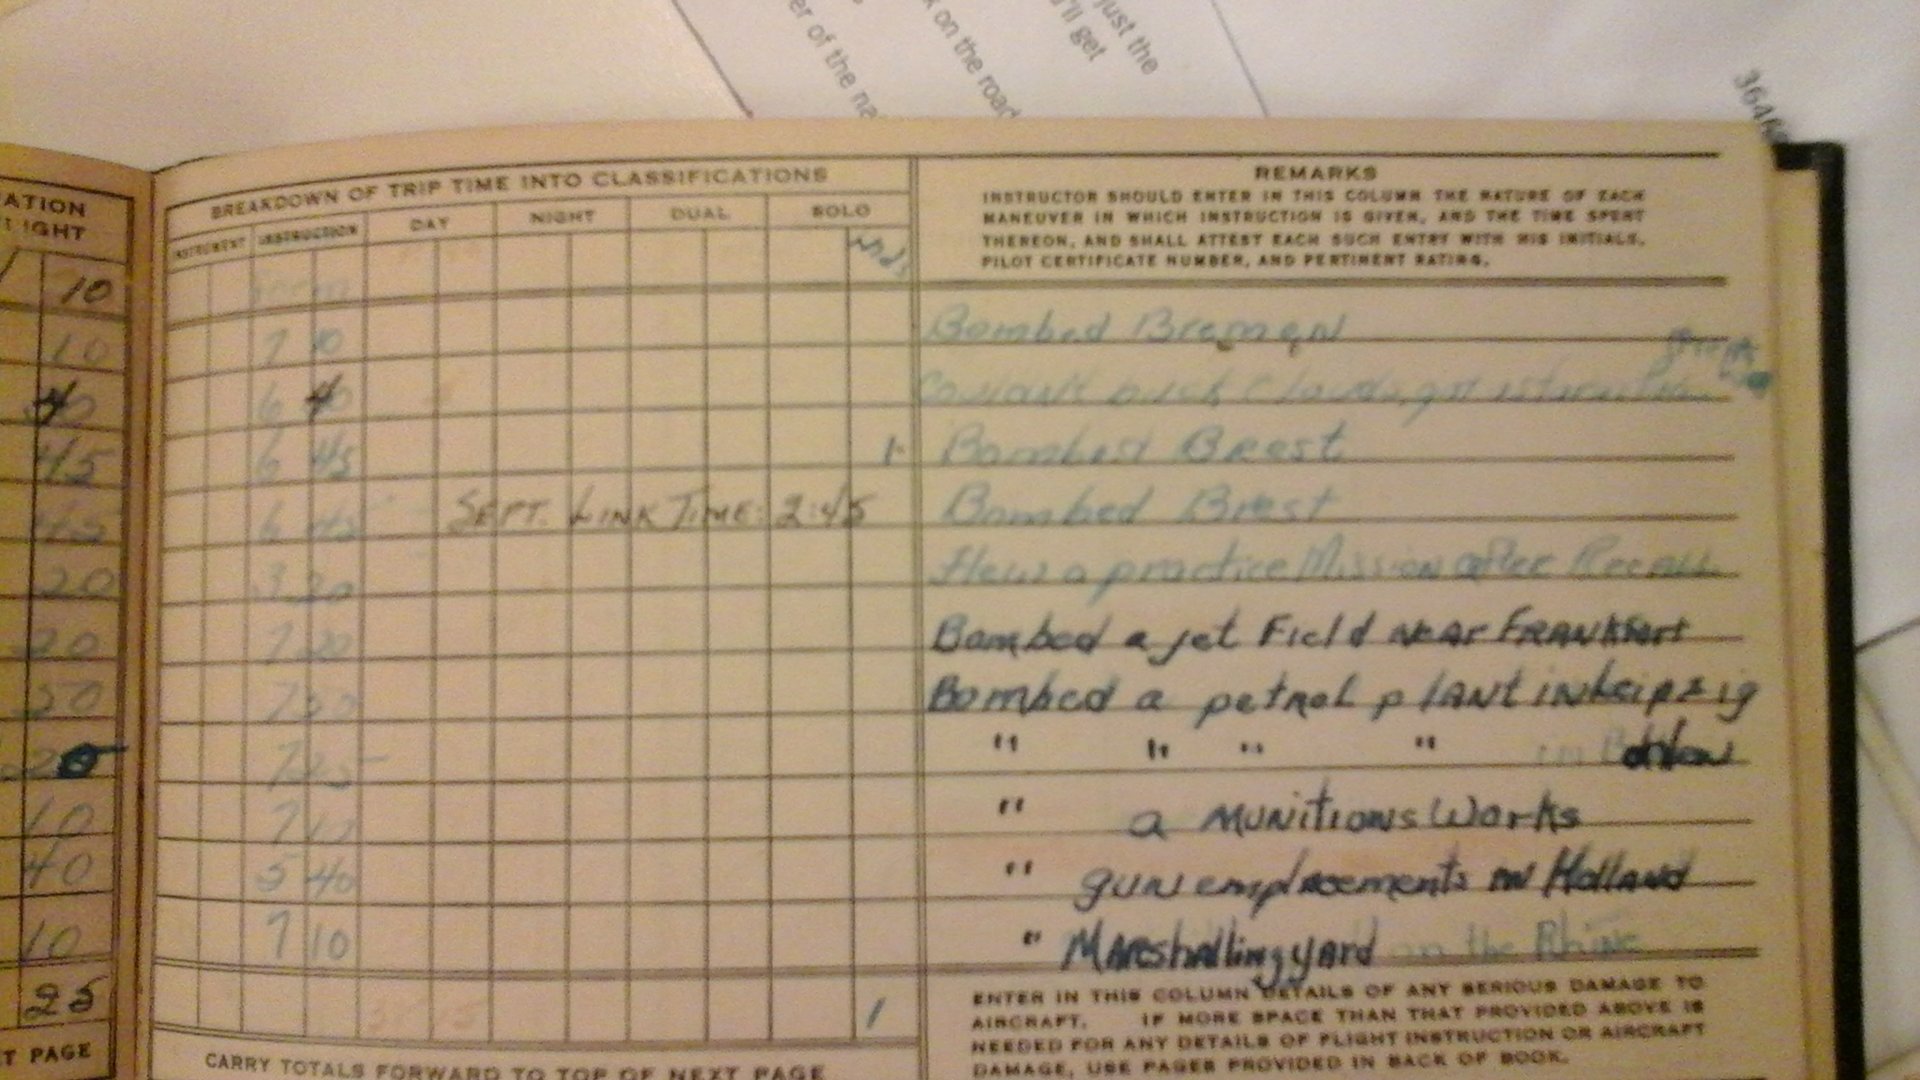 just the
'll get
k on the road
er of the na
3646
ATION
IGHT
BREAKDOWN OF TRIP TIME INTO CLASSIFICATIONS
REMARKS
INSTRUCTOR SHOULD ENTER IN THIS COLUMN THE NATURE OF EACH
MANEUVER IN WHICH INSTRUCTION IS GIVEN, AND THE TIME SPENT
THEREON, AND SHALL ATTEST EACH SUCH ENTRY WITH HIS INITIALS,
PILOT CERTIFICATE NUMBER, AND PERTINENT RATING.
INSTRUMENT INSTRUCTION DAY NIGHT DUAL SOLO
10
10 7 10 Bombed Bremen
40 6 40 clouds, got
45 6 45 1 Bombed Brest
45 6 45 SEPT. LINK TIME: 2:45 Bombed Brest
20 3 20 Flew a practice Mission after Recall
20 7 20 Bombed a jet Field near FRANKfort
50 7 50 Bombed a petrol plant in Leipzig
20 7 25 " " " " in
10 7 10 " a MUNitions Works
40 5 40 " gun emplacements in Holland
10 7 10 " Marshalling yard on the Rhine
25 1
T PAGE
CARRY TOTALS FORWARD TO TOP OF NEXT PAGE
ENTER IN THIS COLUMN DETAILS OF ANY SERIOUS DAMAGE TO
AIRCRAFT. IF MORE SPACE THAN THAT PROVIDED ABOVE IS
NEEDED FOR ANY DETAILS OF FLIGHT INSTRUCTION OR AIRCRAFT
DAMAGE, USE PAGES PROVIDED IN BACK OF BOOK.